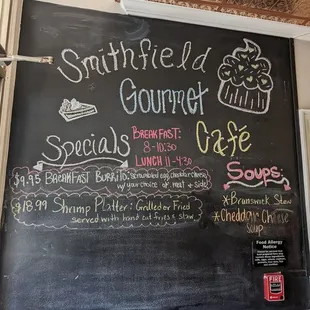 Smithfield
Gourmet
Café
Specials
BREAKFAST:
8-10:30
LUNCH 11-4:30
$9.95 BREAKFAST BURRITO: Scrambled egg, cheddar cheese
w/your choice of meat + side
$18.99 Shrimp Platter: Grilled or Fried
Served with hand cut fries & slaw
Soups:
*Brunswick Stew
*Cheddar Cheese
Soup
Food Allergy
Notice
FIRE